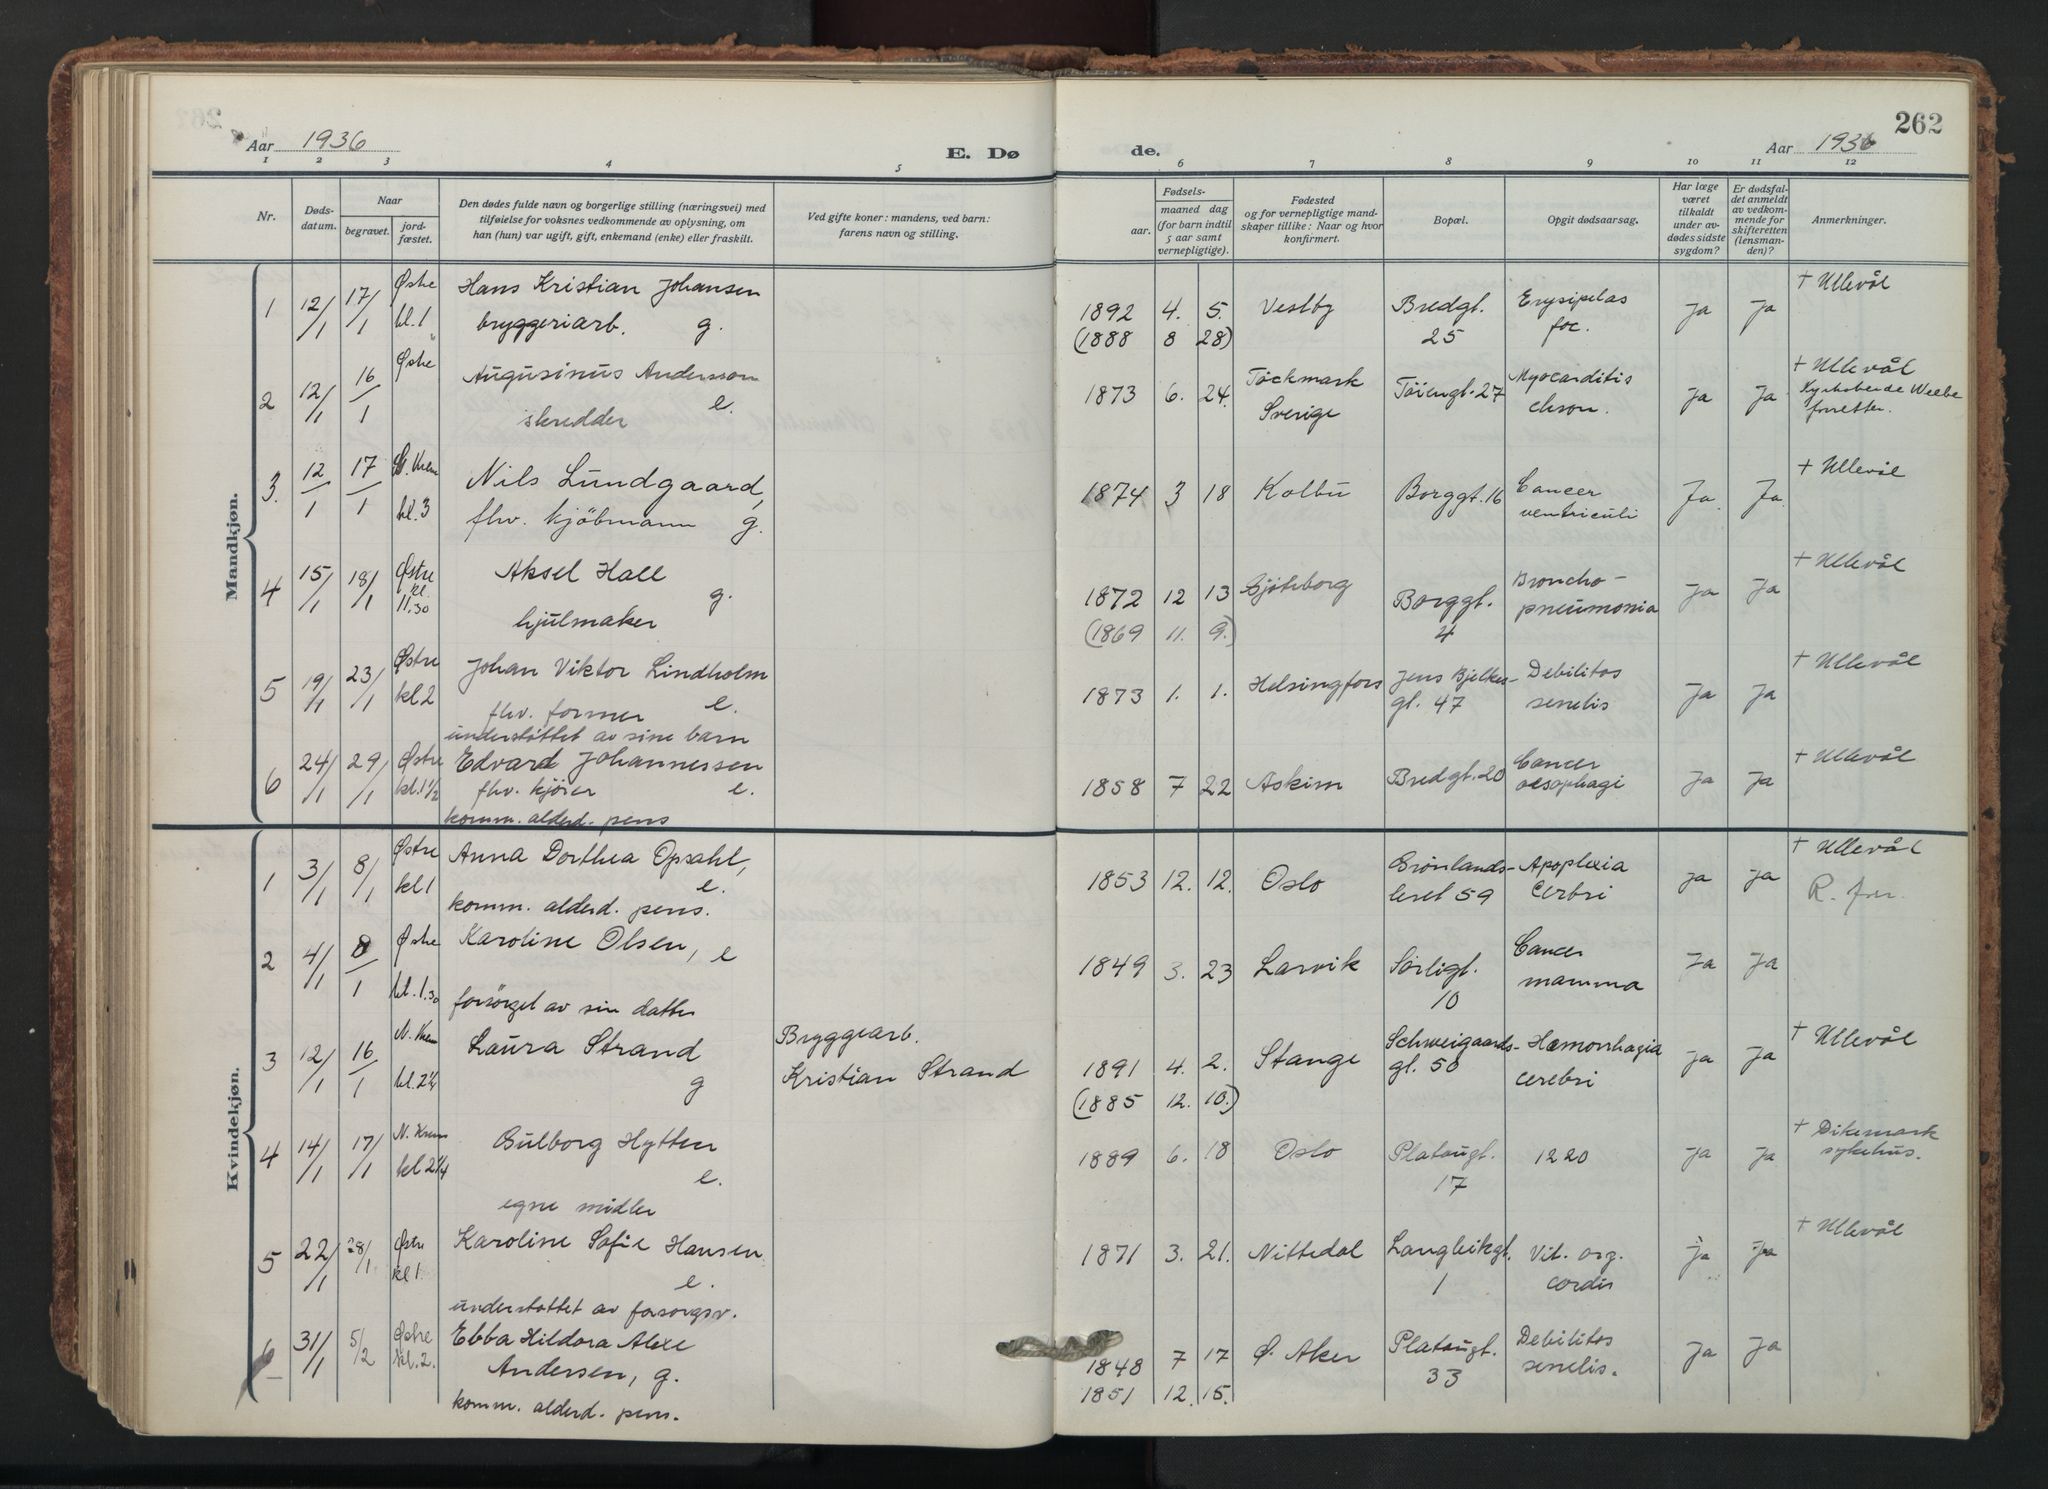 262
Aar 1936
E. Dø
de.
Aar 1936
1 2 3 4 5 6 7 8 9 10 11 12
Nr.
Døds-
datum.
Naar
begravet.
jord-
fæstet.
Den dødes fulde navn og borgerlige stilling (næringsvei) med
tilføielse for voksnes vedkommende av oplysning, om
han (hun) var ugift, gift, enkemand (enke) eller fraskilt.
Ved gifte koner: mandens, ved barn:
farens navn og stilling.
Fødsels-
aar.
maaned dag
(for barn indtil
5 aar samt
vernepligtige).
Fødested
og for vernepligtige mand-
skaper tillike: Naar og hvor
konfirmert.
Bopæl.
Opgit dødsaarsag.
Har læge
været
tilkaldt
under av-
dødes sidste
sygdom?
Er dødsfal-
det anmeldt
av vedkom-
mende for
skifteretten
(lensman-
den)?
Anmerkninger.
Mandkjøn.
1 12/1 17/1 Østre kl. 1 Hans Kristian Johansen 1892 4. 5. Vestby Bredgt. 25 Erysipelas foc. Ja Ja + Ullevål
bryggeriarb. g. (1888 8 28)
2 12/1 16/1 Østre Augusinus Andersson 1873 6. 24. Töckmark Sverige Töiengt. 27 Myocarditis chron. Ja Ja + Ullevål
skredder e. forretter.
3. 12/1 17/1 kl. 3 Nils Lundgaard, 1874 3 18 Kolbu Borggt. 16 Cancer ventriculi Ja. Ja. + Ullevål
fhv. kjöbmann g.
4 15/1 18/1 Østre kl. 11.30 Aksel Hall g. 1872 12 13 Gjöteborg Borggt. 4 Broncho-pneumonia Ja Ja + Ullevål
hjulmaker (1869 11. 9.)
5 19/1 23/1 Østre kl 2 Johan Viktor Lindholm 1873 1. 1. Helsingfors Jens Bjelkes-gt. 47 Debilitas senilis Ja Ja + Ullevål
fhv. former e.
understøttet av sine barn
6 24/1 29/1 Østre kl. 1 1/2 Edvard Johannessen 1858 7 22 Askim Bredgt. 20 Cancer oesophagi Ja Ja + Ullevål
fhv. kjöier e.
komm. alderd. pens
Kvindekjøn.
1 3/1 8/1 Østre kl 1 Anna Dorthea Opsahl, e. 1853 12. 12. Oslo Grönlands-leret 59 Apoplexia cerbri Ja Ja + Ullevål
komm. alderd. pens. R. forr.
2 4/1 8/1 Østre kl. 1.30 Karoline Olsen, e 1849 3. 23 Larvik Sörligt. 10 Cancer mamma Ja Ja
forsörget av sin datter
3 12/1 16/1 N. Krem kl. 2 1/4 Laura Strand g Bryggearb. Kristian Strand 1891 4. 2. Stange Schweigaards-gt. 50 Hæmorrhagia cerebri Ja Ja + Ullevål
(1885 12. 10.)
4 14/1 17/1 N. Krem kl 2 1/4 Gulborg Hytten e. 1889 6. 18 Oslo Platougt. 17 1220 Ja Ja + Dikemark sykehus.
egne midler
5 22/1 28/1 Østre kl 1. Karoline Sofie Hansen e. 1871 3. 21. Nittedal Langleikgt. 1 Vit. org. cordis Ja Ja + Ullevål
understøttet av forsorgsv.
6 31/1 5/2 Østre kl. 2. Ebba Hildora Alexe 1848 7 17 Ø. Aker Platougt. 33 Debilitas senelis. Ja Ja
Andersen, g. 1851 12. 15.
komm. alderd. pens.